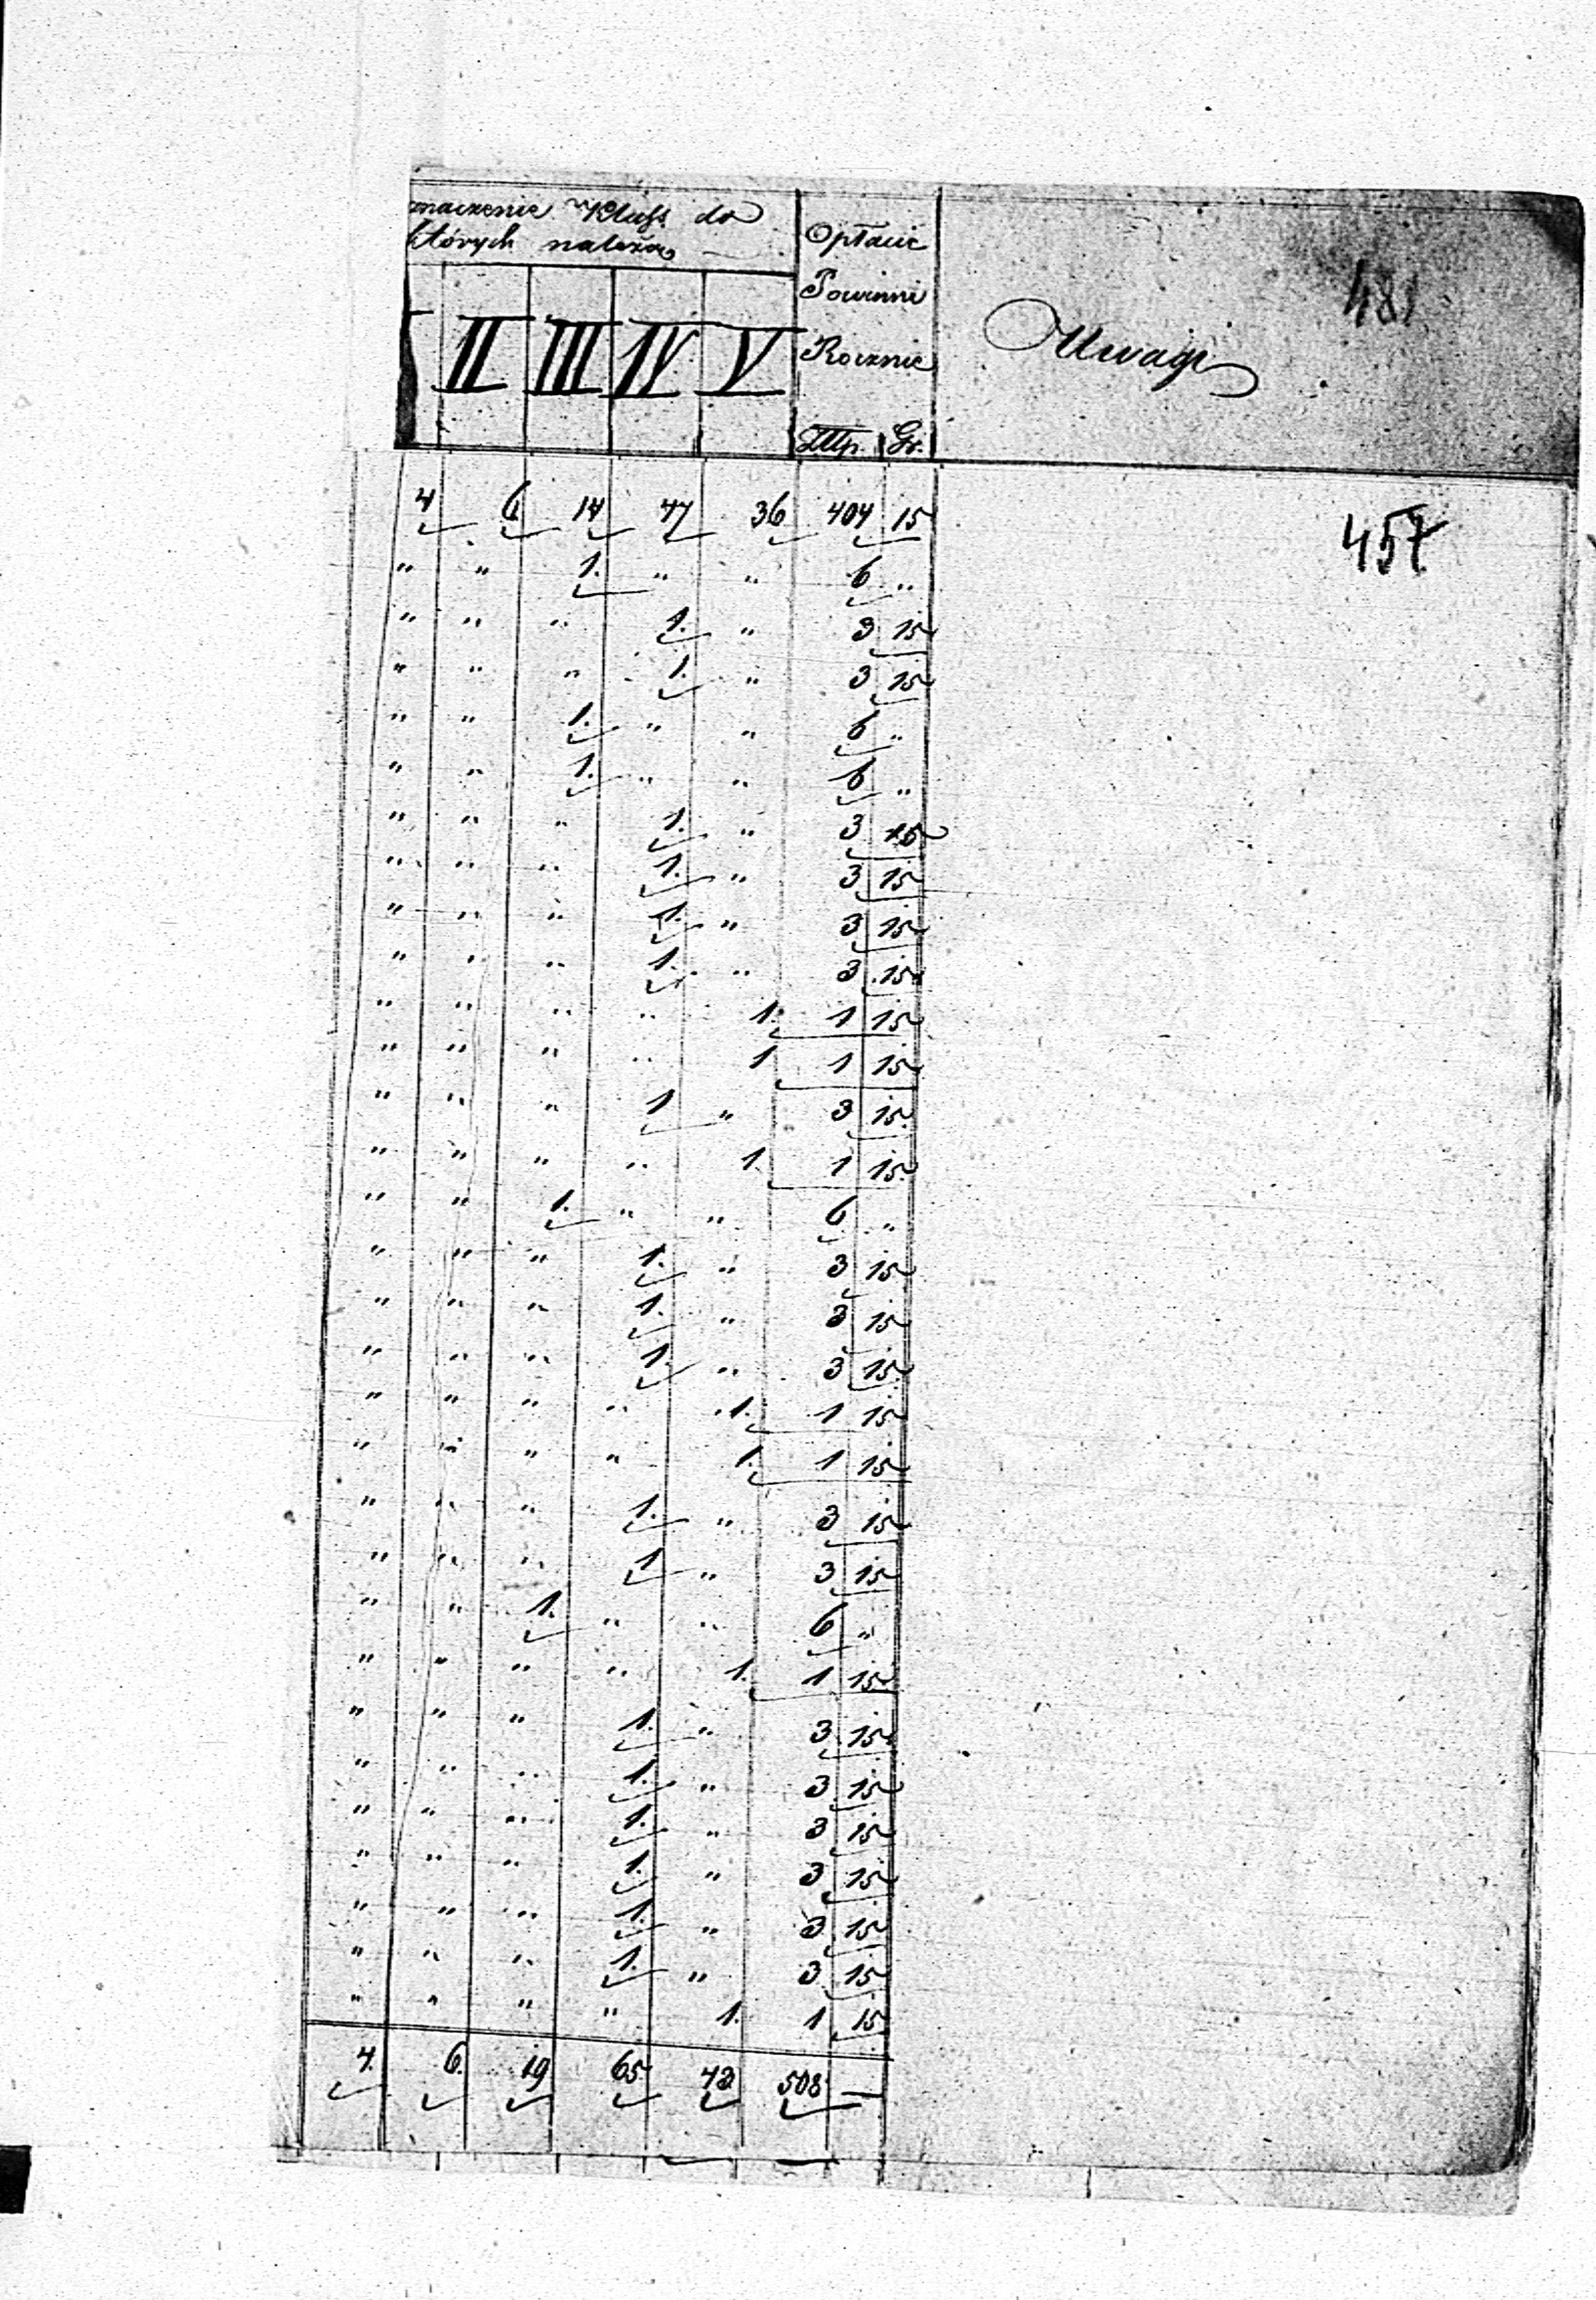 znaczenie Klass do
których należą
Opłacić
Powinni
Rocznie
Uwagi
481
I II III IV V
Złp. Gr.
4 6 14 47 36 404 15
457
" " 1. " " 6 "
" " " 1. " 3 15
" " " 1. " 3 15
" " 1. " " 6 "
" " 1. " " 6 "
" " " 1. " 3 15
" " " 1. " 3 15
" " " 1. " 3 15
" " " 1. " 3 15
" " " " 1. 1 15
" " " " 1 1 15
" " " 1 " 3 15
" " " " 1. 1 15
" " 1. " " 6 "
" " " 1. " 3 15
" " " 1. " 3 15
" " " 1. " 3 15
" " " " 1. 1 15
" " " " 1. 1 15
" " " 1. " 3 15
" " " 1 " 3 15
" " 1. " " 6 "
" " " " 1. 1 15
" " " 1. " 3 15
" " " 1. " 3 15
" " " 1. " 3 15
" " " 1. " 3 15
" " " 1. " 3 15
" " " 1. " 3 15
" " " " 1. 1 15
4. 6. 19 65 43 508 —